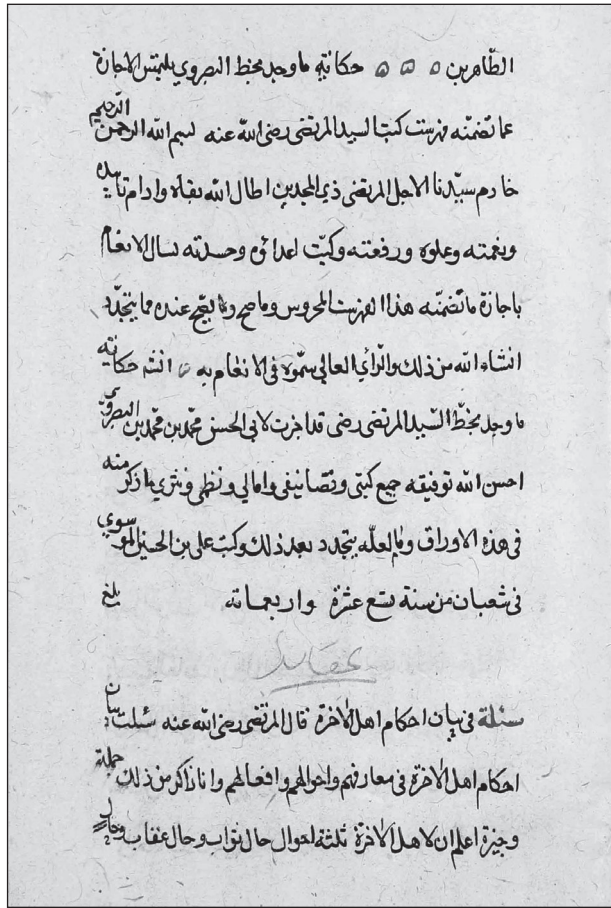 الطاهرين ه ه ه حكاية ما وجد بخط البصروي يلتمس الاجازة
عما تضمنه فهرست كتب السيد المرتضى رضى الله عنه بسم الله الرحمن الرحيم
خادم سيدنا الاجل المرتضى ذي المجدين اطال الله بقاه وادام تاييده
ونعمته وعلوه ورفعته وكبت اعدائه وحسدته يسال الانعام
باجازة ما تضمنه هذا الفهرست المحروس وما صح وما يصح عنده مما يتجدد
انشاء الله من ذلك والراي العالي سموه فى الانعام به انشه حكاية
ما وجد بخط السيد المرتضى رضى قد اجزت لابى الحسن محمد بن محمد بن البصروي
احسن الله توفيقه جميع كتبى وتصانيفى وامالي ونظمى ونثري ما ذكر منه
فى هذه الاوراق وما لعله يتجدد بعد ذلك وكتب على بن الحسين الموسوي
فى شعبان من سنة سبع عشرة واربعمائه بلغ
عقايد
مسئلة فى بيان احكام اهل الاخرة قال المرتضى رضى الله عنه سئلت بيان
احكام اهل الاخرة فى معارفهم واحوالهم وافعالهم وانا ذاكر من ذلك جملة
وجيزة اعلم ان لاهل الاخرة ثلثة احوال حال ثواب وحال عقاب وحال